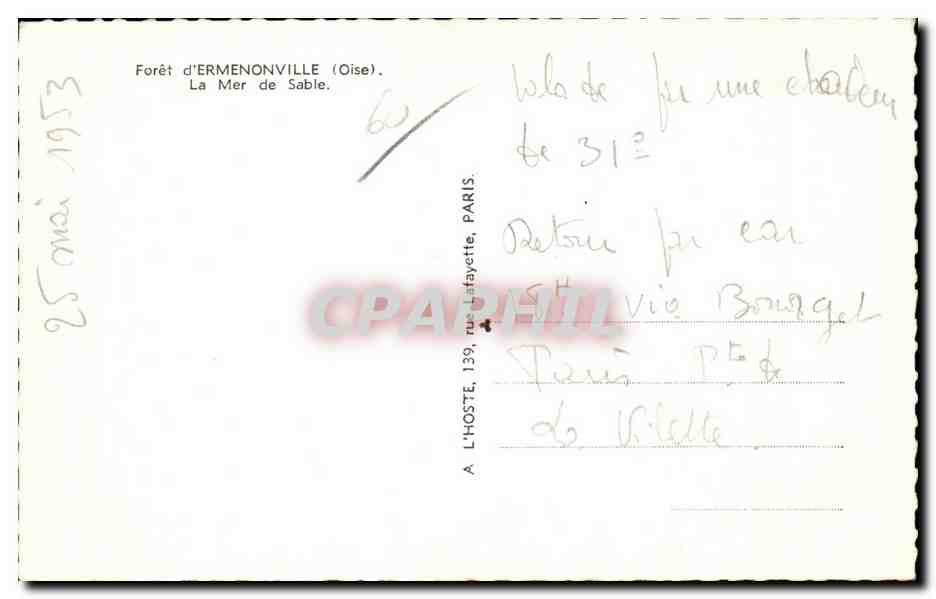 Forêt d'ERMENONVILLE (Oise).
La Mer de Sable.
25 mai 1953
60
A L'HOSTE, 139, rue Lafayette, PARIS.
CPARPHIL
par une
de 31°
Retour par car
5H via Bourget
Paris Pte de
La Villette.